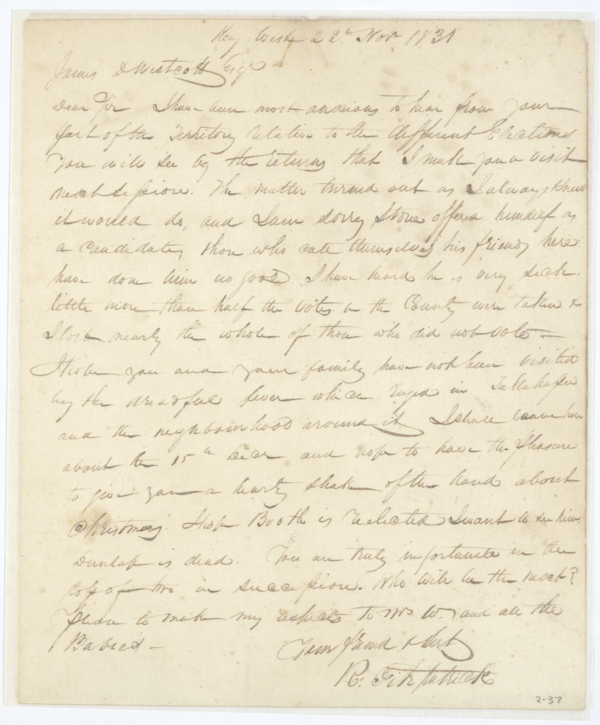 Key West 22d Nov. 1831
James D Westcott Esqr
Dear Sir I have been most anxious to hear from your
part of the Territory relative to the different Elections
You will see by the returns that I make you a visit
next Session. The matter turned out as I always knew
it would do, and I am sorry Stone offered himself as
a candidate, those who call themselves his friends here
have done him no good I have heard he is very sick
little more than half the votes in the County were taken &
I lost nearly the whole of those who did not vote –
I hope you and your family have not been visited
by the dreadful fever which raged in Tallahassee
and the neighbourhood around it, I shall leave here
about the 15th Decr and hope to have the pleasure
to give you a hearty shake of the hand about
Christmas. I hope Booth is reelected I want to see him
Dunlap is dead. You are truly unfortunate in the
loss of two in succession. Who will be the next?
Please to make my respects to Mrs W. and all the
Babies –
Your friend & Svt
R. Fitzpatrick
2-37